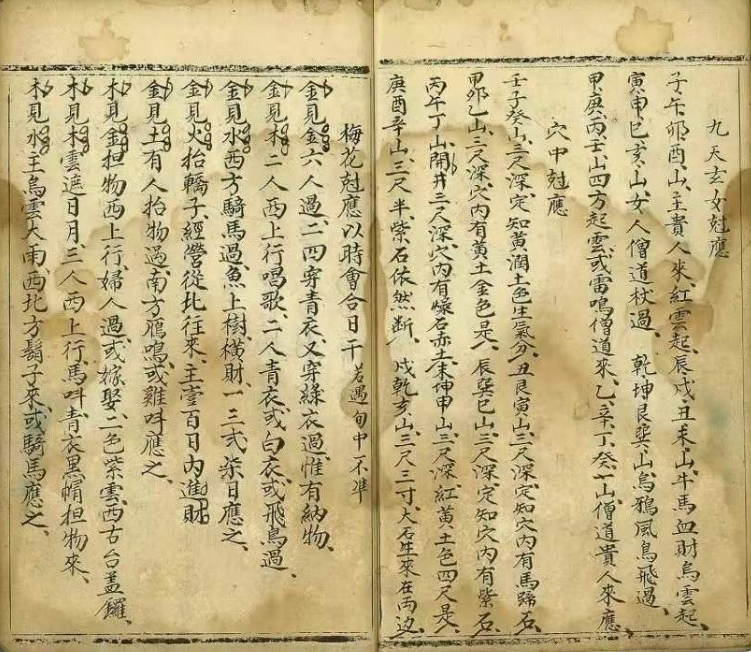 九天玄女尅應
子午卯酉山、主貴人來、紅雲起、辰戌丑未山、牛馬血財烏雲起、
寅申巳亥山、女人僧道杖過、 乾坤艮巽山、烏鴉風鳥飛過、
甲庚丙壬山四方起雲、或雷鳴僧道來、乙辛丁癸山僧道貴人來應
穴中尅應
壬子癸山、三尺深、定知黃潤土色生氣分、丑艮寅山、三尺深、定知穴內有馬蹄石、
甲卯乙山、三尺深、穴內有黃土金色是、辰巽巳山、三尺深、定知穴內有紫石、
丙午丁山、開井三尺深、穴內有石赤土、未坤申山、三尺深、紅黃土色四尺是、
庚酉辛山、三尺半、紫石依然斷、戌乾亥山、三尺三寸、大石生來在兩边、
梅花尅應以時會合日干若遇旬中不準
金見金六人過、二四穿青衣、又穿綠衣過、惟有納物、
金見木二人西上行唱歌、二人青衣或白衣、或飛鳥過、
金見水西方騎馬過、魚上樹橫財、一三弍柒日應之、
金見火抬轎子、經營從北往來、主壹百日內進財
金見土有人抬物過、南方鴈鳴、或雞呌應之、
木見金担物西上行、婦人過、或嫁娶、二色紫雲、西古台盖鑼、
木見木雲遮日月、三人西上行、馬呌、青衣黑帽担物來、
木見水主烏雲大雨、西北方鬍子來、或騎馬應之、